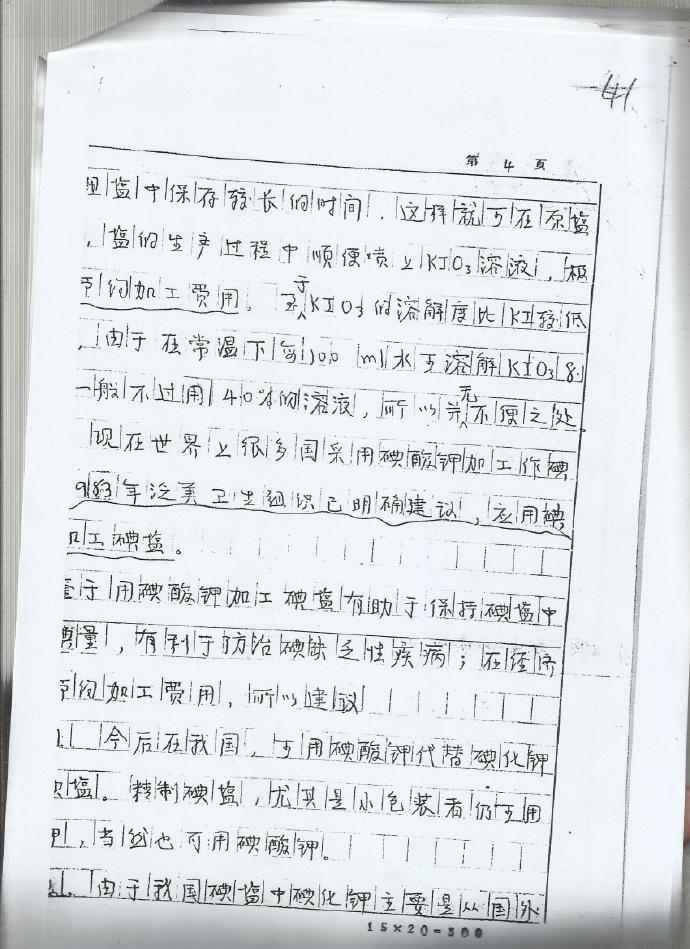 41
第 4 页
盐中保存较长的时间．这样就可在原盐
，盐的生产过程中顺便喷上KIO3溶液，极
节约加工费用。至于KIO3的溶解度比KI较低
，由于在常温下每100 ml水可溶解KIO3 8.
一般不过用40%的溶液，所以并无不便之处
现在世界上很多国采用碘酸钾加工作碘
983年泛美卫生组织已明确建议，应用碘
加工碘盐。
鉴于用碘酸钾加工碘盐有助于保持碘盐中
质量，有利于防治碘缺乏性疾病；在经济
节约加工费用，所以建议
1. 今后在我国，可用碘酸钾代替碘化钾
盐。精制碘盐，尤其是小包装者仍可用
，当然也可用碘酸钾。
由于我国碘盐中碘化钾主要是从国外
15×20=300